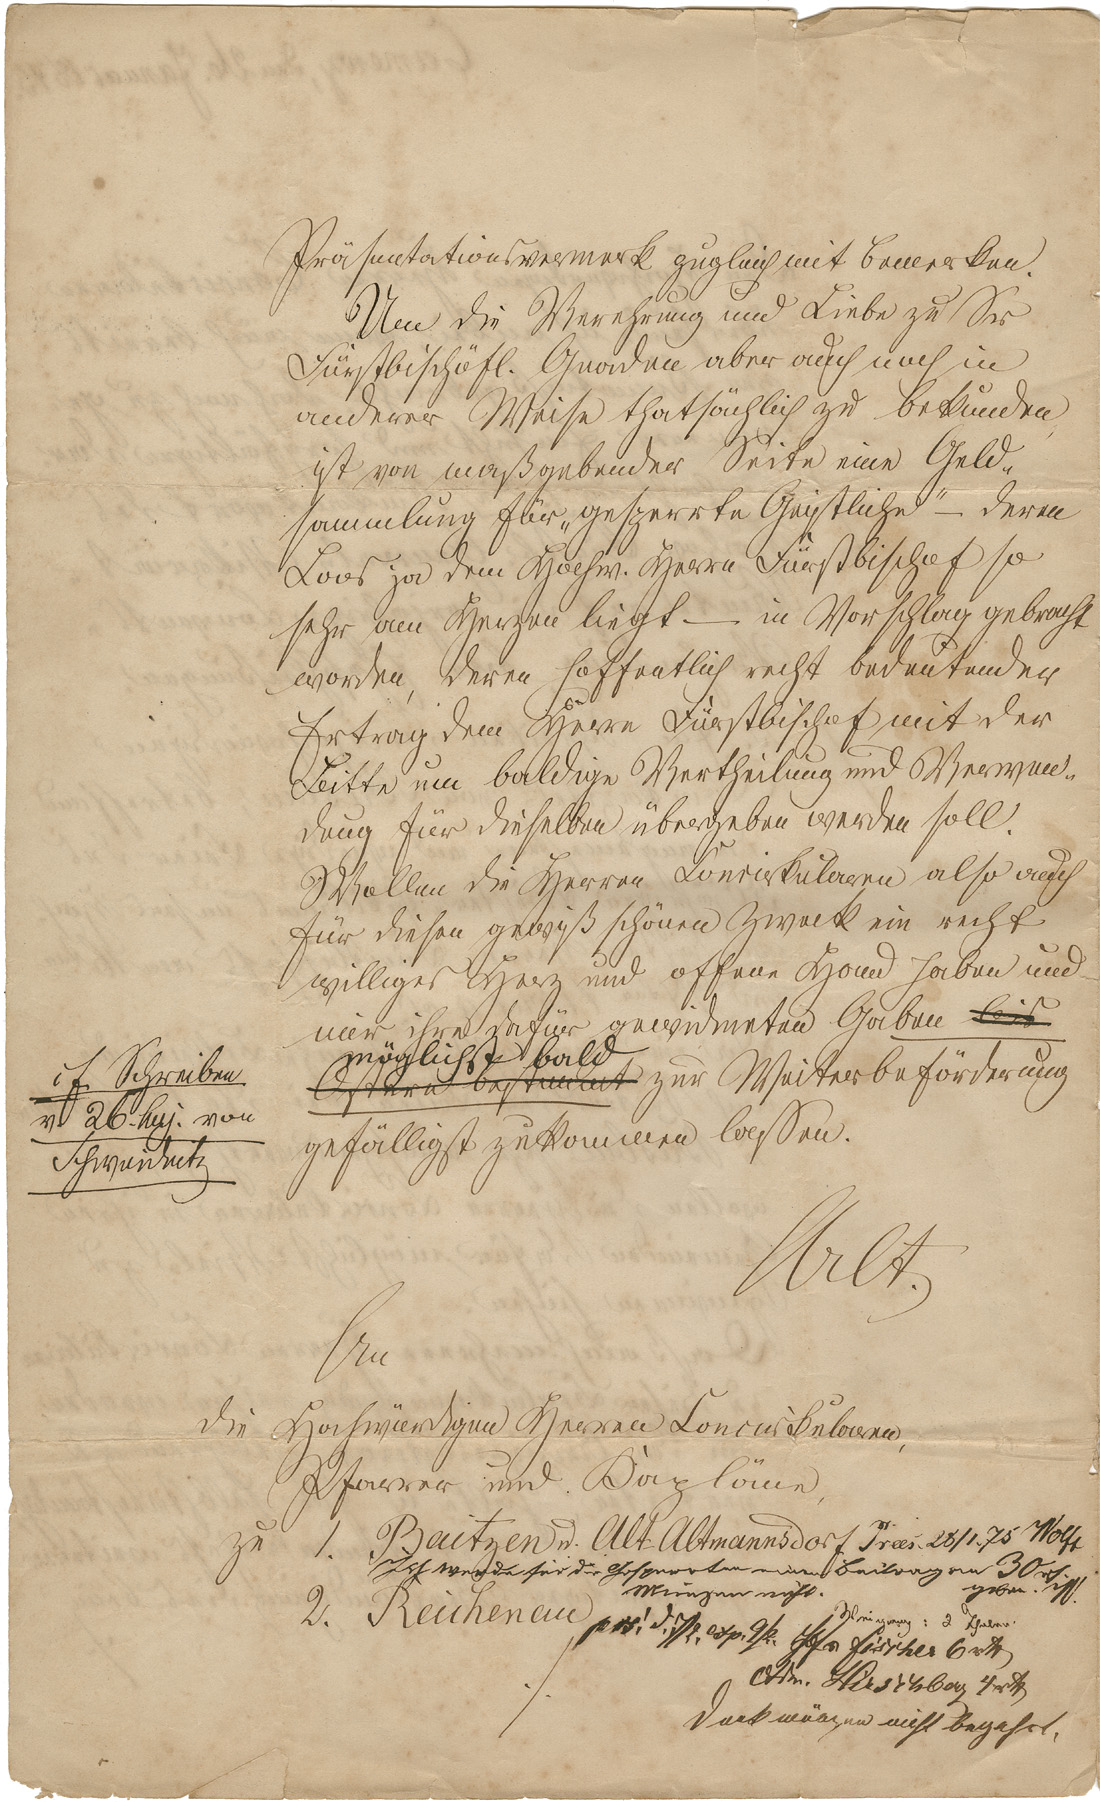 Präsentationsvermerk zugleich mit bemerken.
Um die Verehrung und Liebe zu Sr
Fürstbischöfl. Gnaden aber auch noch in
anderer Weise thatsächlich zu bekunden,
ist von maßgebender Seite eine Geld-
sammlung für „gesperrte Geistliche" — deren
Loos ja dem Hochw. Herrn Fürstbischof so
sehr am Herzen liegt — in Vorschlag gebracht
worden, deren hoffentlich recht bedeutender
Ertrag dem Herrn Fürstbischof mit der
Bitte um baldige Vertheilung und Verwen-
dung für dieselben übergeben werden soll.
Wollen die Herren Concirkularen also auch
für diesen gewiß schönen Zweck ein recht
williges Herz und offene Hand haben und
mir ihre dafür gewidmeten Gaben bis
möglichst bald
Ostern bestimmt zur Weiterbeförderung
gefälligst zukommen lassen.
cf Schreiben
v 26. huj. von
Schweidnitz
Arlt.
An
die Hochwürdigen Herren Concirkularen,
Pfarrer und Kapläne,
zu 1. Baitzen u. Alt Altmannsdorf Präs. 28/1.75 Wolff
Ich werde für die Gesperrten einen Beitrag von 30
Münzen nicht. geben.
2. Reichenau
2 Thaler.
Fischer 6 rtl
Hirschberg 4 rtl
Denkmünzen nicht begehrt.